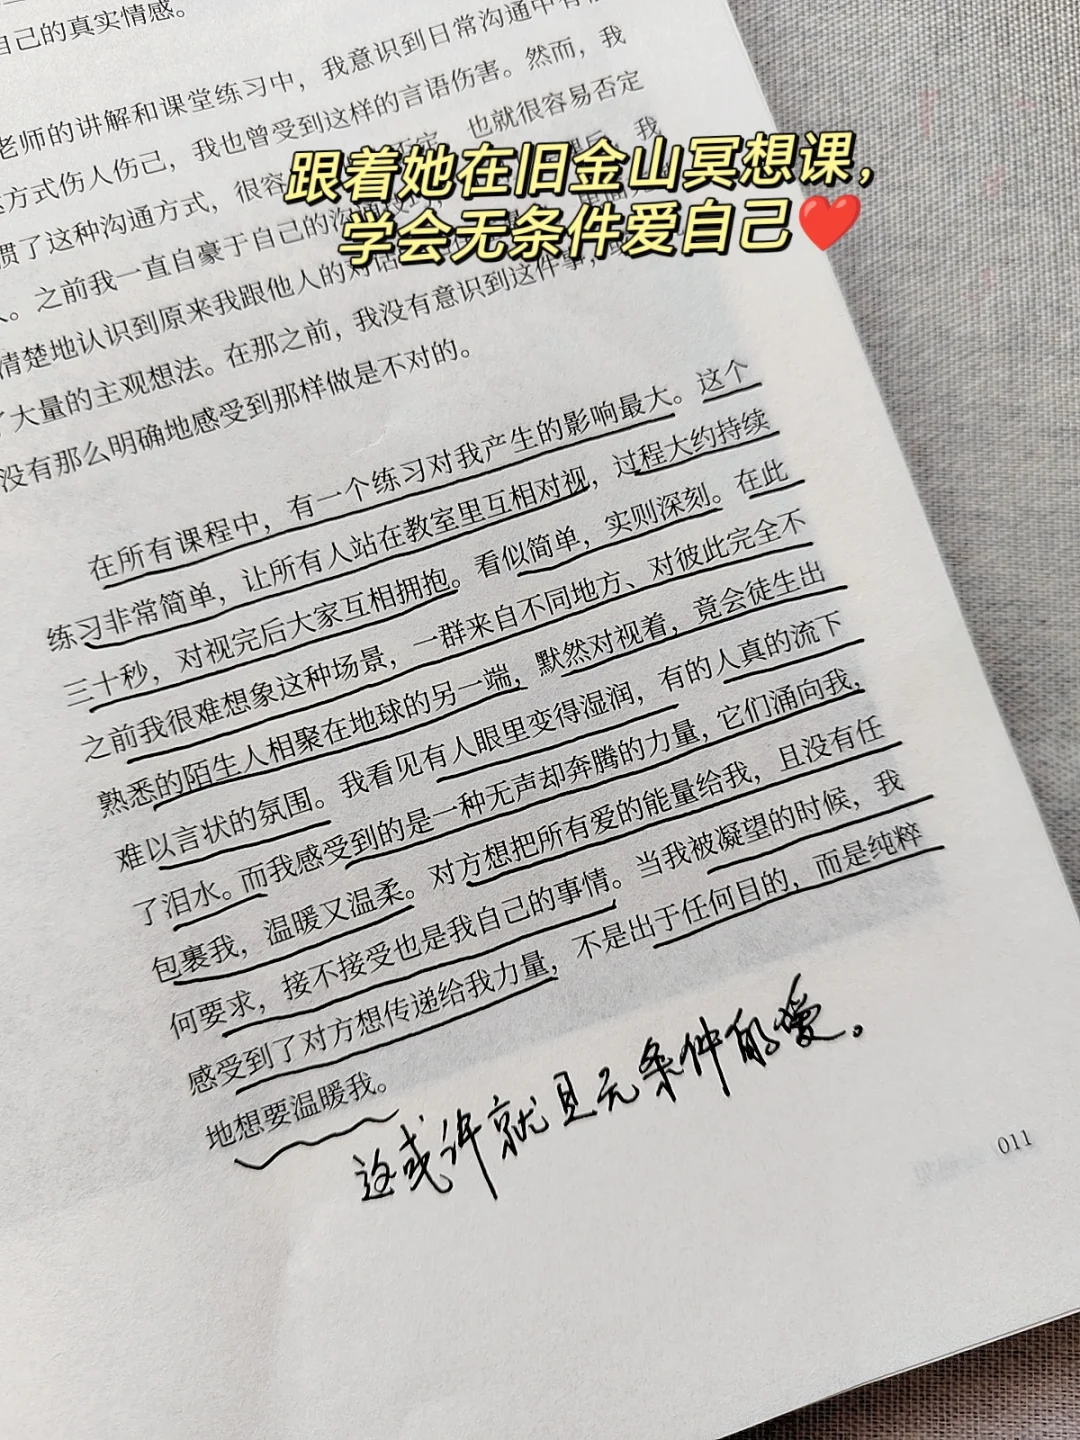 自己的真实情感。
老师的讲解和课堂练习中，我意识到日常沟通中有
方式伤人伤己，我也曾受到这样的言语伤害。然而，我
惯了这种沟通方式，很容 也就很容易否定
。之前我一直自豪于自己的沟通 后，我
清楚地认识到原来我跟他人的对话
了大量的主观想法。在那之前，我没有意识到这件事，
没有那么明确地感受到那样做是不对的。
跟着她在旧金山冥想课，
学会无条件爱自己❤️
在所有课程中，有一个练习对我产生的影响最大。这个
练习非常简单，让所有人站在教室里互相对视，过程大约持续
三十秒，对视完后大家互相拥抱。看似简单，实则深刻。在此
之前我很难想象这种场景，一群来自不同地方、对彼此完全不
熟悉的陌生人相聚在地球的另一端，默然对视着，竟会徒生出
难以言状的氛围。我看见有人眼里变得湿润，有的人真的流下
了泪水。而我感受到的是一种无声却奔腾的力量，它们涌向我，
包裹我，温暖又温柔。对方想把所有爱的能量给我，且没有任
何要求，接不接受也是我自己的事情。当我被凝望的时候，我
感受到了对方想传递给我力量，不是出于任何目的，而是纯粹
地想要温暖我。
这或许就是无条件的爱。
011